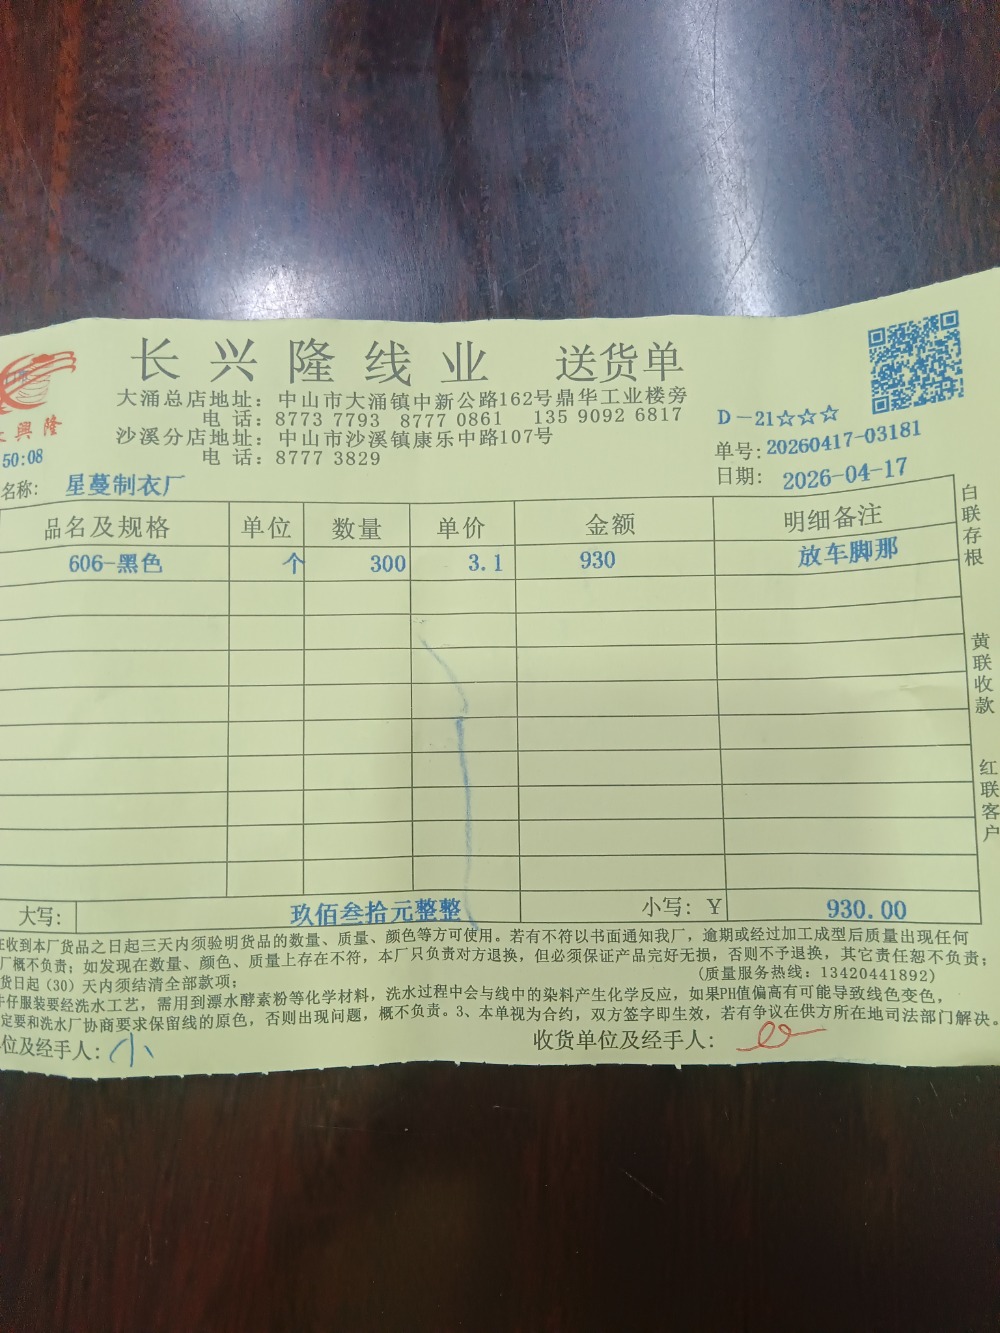 长兴隆线业 送货单
大涌总店地址：中山市大涌镇中新公路162号鼎华工业楼旁
电 话：8773 7793 8777 0861 135 9092 6817
沙溪分店地址：中山市沙溪镇康乐中路107号
电 话：8777 3829
興隆
D-21☆☆☆
单号:20260417-03181
日期: 2026-04-17
50:08
名称: 星蔓制衣厂
品名及规格 单位 数量 单价 金额 明细备注
606-黑色 个 300 3.1 930 放车脚那
大写: 玖佰叁拾元整整 小写: ￥ 930.00
白联存根
黄联收款
红联客户
在收到本厂货品之日起三天内须验明货品的数量、质量、颜色等方可使用。若有不符以书面通知我厂，逾期或经过加工成型后质量出现任何
厂概不负责；如发现在数量、颜色、质量上存在不符，本厂只负责对方退换，但必须保证产品完好无损，否则不予退换，其它责任恕不负责；
货日起(30）天内须结清全部款项； (质量服务热线：13420441892)
牛仔服装要经洗水工艺，需用到漂水酵素粉等化学材料，洗水过程中会与线中的染料产生化学反应，如果PH值偏高有可能导致线色变色，
定要和洗水厂协商要求保留线的原色，否则出现问题，概不负责。3、本单视为合约，双方签字即生效，若有争议在供方所在地司法部门解决。
位及经手人: 小 收货单位及经手人: